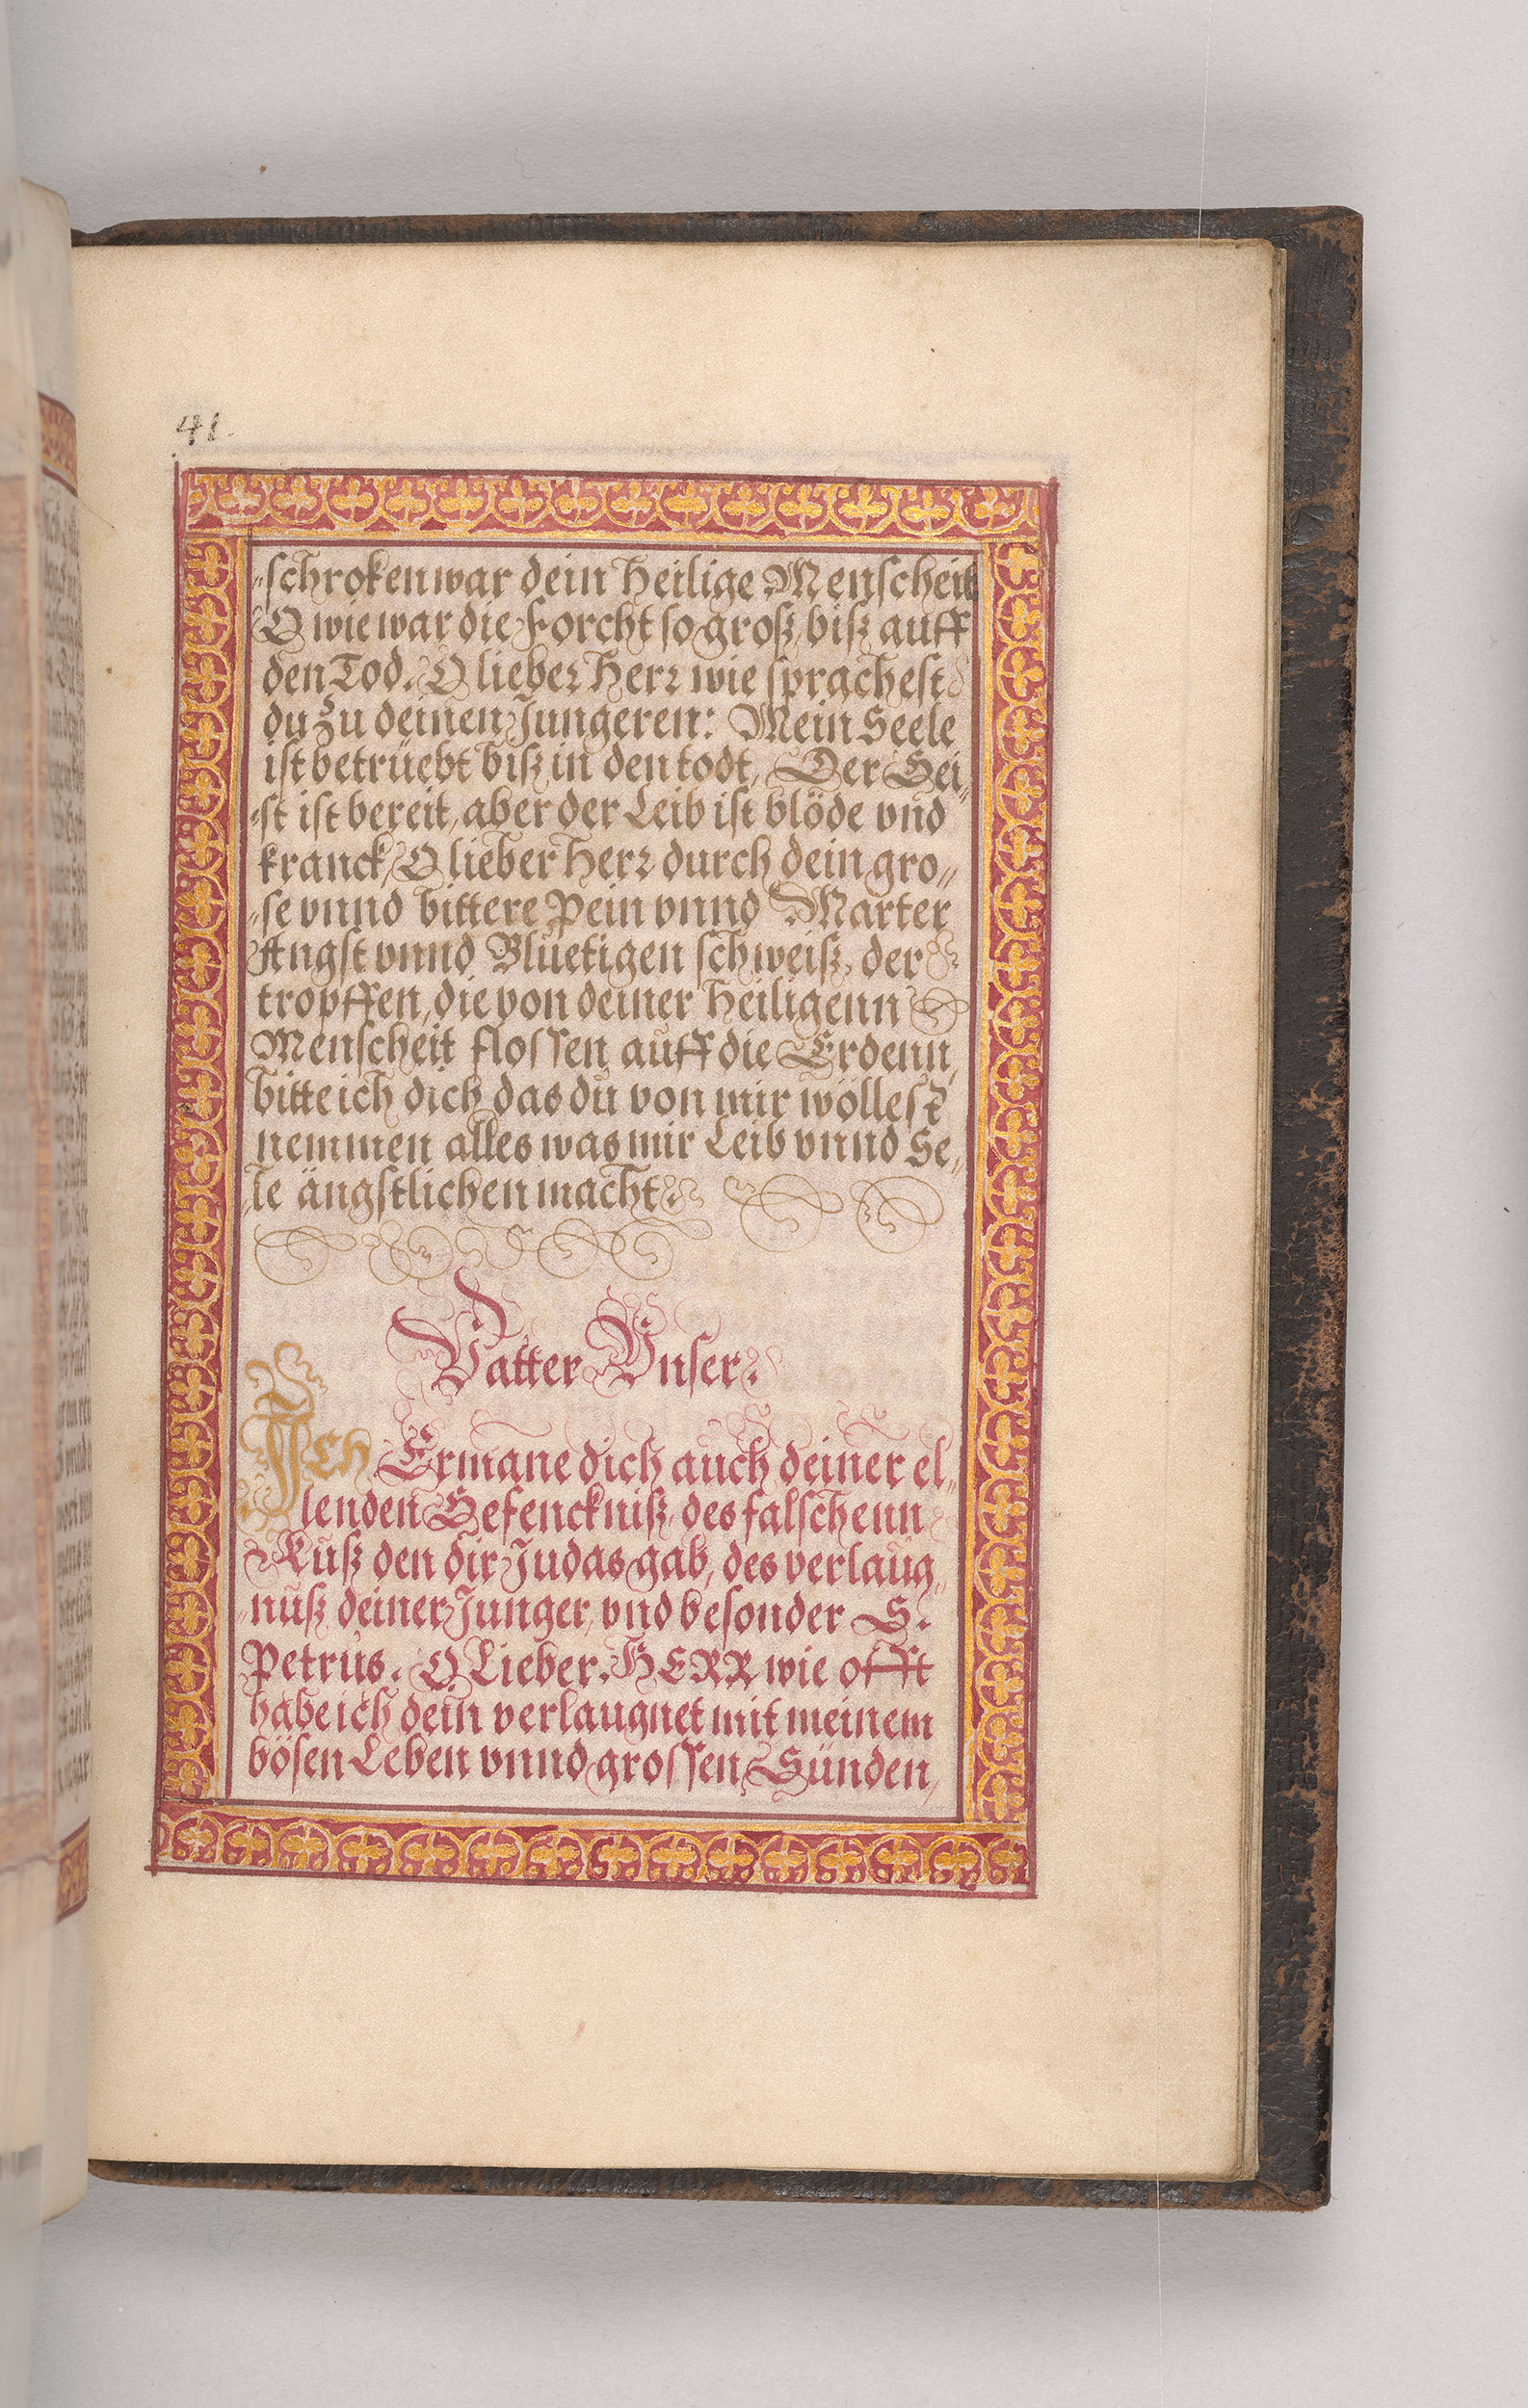 41.
„schroken war dein Heilige Menscheit
O wie war die Forcht so groß, biß auff
den Tod. O lieber Herr wie sprachest
du zu deinen Jungeren: Mein Seele
ist betrüebt biß in den todt, Der Gei„
„st ist bereit, aber der Leib ist blöde vnd
kranck, O lieber Herr durch dein gro„
„se vnnd bittere Pein vnnd Marter
Angst vnnd Bluetigen schweiß, der
tropffen, die von deiner Heiligenn
Menscheit flossen auff die Erdenn,
bitte ich dich das du von mir wöllest
nemmen alles was mir Leib vnnd Se„
„le ängstlichen macht.
Vatter Vnser.
Ich Ermane dich auch deiner el„
lenden Gefenckniß, des falschenn
Kuß den dir Judas gab, des verlaug„
„nuß deiner Junger, vnd besonder S.
Petrus. O Lieber. HERR wie offt
habe ich dein verlaugnet mit meinem
bösen Leben vnnd grossen Sünden,